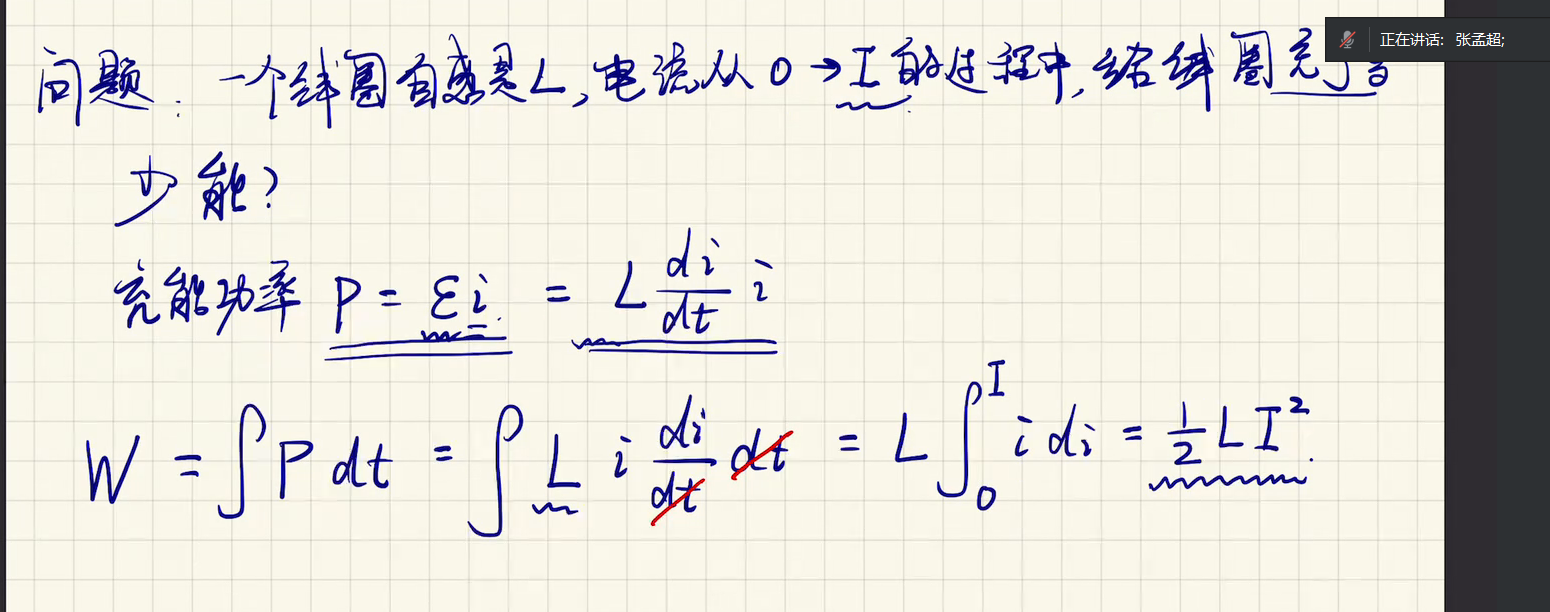 正在讲话: 张孟超;
问题: 一个线圈自感是L,电流从0→I的过程中,给线圈充了多
少能?
充能功率 P = εi = L di/dt i
W = ∫P dt = ∫ L i di/dt dt = L ∫₀ᴵ i di = 1/2 L I².